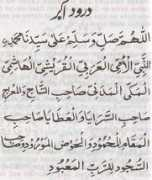 درود اکبر
اَللّٰهُمَّ صَلِّ وَسَلِّمْ عَلٰى سَيِّدِنَا مُحَمَّدِنِ
النَّبِيِّ الْاُمِّيِّ الْعَرَبِيِّ الْقُرَيْشِيِّ الْهَاشِمِيِّ
الْمَكِّيِّ الْمَدَنِيِّ صَاحِبِ التَّاجِ وَالْمِعْرَاجِ
صَاحِبِ السَّرَايَا وَالْعَطَايَا صَاحِبِ
الْمَقَامِ الْمَحْمُوْدِ وَالْحَوْضِ الْمَوْرُوْدِ وَصَاحِبِ
السُّجُوْدِ لِلرَّبِّ الْمَعْبُوْدِ